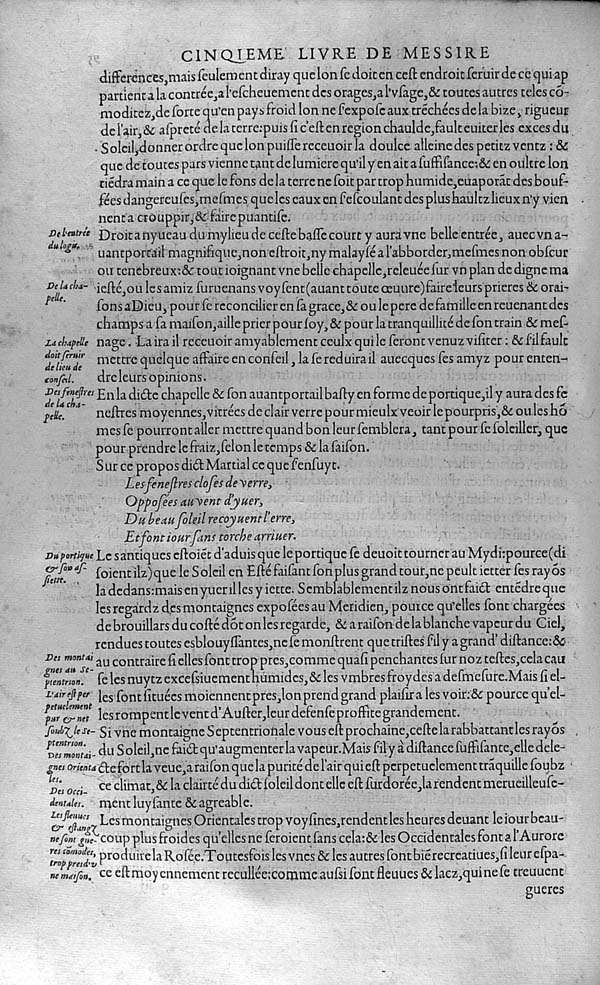 CINQIEME LIVRE DE MESSIRE
differences, mais ſeulement diray que lon ſe doit en ceſt endroit ſeruir de ce qui ap
partient a la contrée, a l'eſcheuement des orages, a l'vſage, & toutes autres teles cõ-
moditez, de ſorte qu'en pays froid lon ne ſ'expoſe aux trẽchées de la bize, rigueur
de l'air, & aſpreté de la terre: puis ſi c'eſt en region chaulde, fault euiter les exces du
Soleil, donner ordre que lon puiſſe receuoir la doulce alleine des petitz ventz : &
que de toutes pars vienne tant de lumiere qu'il y en ait a ſuffiſance: & en oultre lon
tiẽdra main a ce que le fons de la terre ne ſoit par trop humide, euaporãt des bouf-
fées dangereuſes, meſmes que les eaux en ſ'eſcoulant des plus haultz lieux n'y vien
nent a crouppir, & faire puantiſe.
De l'entrée
du logis.
Droit a nyueau du mylieu de ceſte baſſe court y aura vne belle entrée, auec vn a-
uantportail magnifique, non eſtroit, ny malayſé a l'abborder, meſmes non obſcur
ou tenebreux: & tout ioignant vne belle chapelle, releuée ſur vn plan de digne ma
De la cha-
pelle.
ieſté, ou les amiz ſuruenans voyſent (auant toute œuure) faire leurs prieres & orai-
ſons a Dieu, pour ſe reconcilier en ſa grace, & ou le pere de famille en reuenant des
champs a ſa maiſon, aille prier pour ſoy, & pour la tranquillité de ſon train & meſ-
La chapelle
doit ſeruir
de lieu de
conſeil.
nage. La ira il receuoir amyablement ceulx qui le ſeront venuz viſiter : & ſ'il fault
mettre quelque affaire en conſeil, la ſe reduira il auecques ſes amyz pour enten-
dre leurs opinions.
Des feneſtres
de la cha-
pelle.
En la dicte chapelle & ſon auantportail baſty en forme de portique, il y aura des fe
neſtres moyennes, vitrées de clair verre pour mieulx veoir le pourpris, & ou les hõ
mes ſe pourront aller mettre quand bon leur ſemblera, tant pour ſe ſoleiller, que
pour prendre le fraiz, ſelon le temps & la ſaiſon.
Sur ce propos dict Martial ce que ſ'enſuyt.
Les feneſtres cloſes de verre,
Oppoſées au vent d'yuer,
Du beau ſoleil reçoyuent l'erre,
Et font iour ſans torche arriuer.
Du portique
& ſon aſ-
ſiette.
Les antiques eſtoiẽt d'aduis que le portique ſe deuoit tourner au Mydi: pource (di
ſoient ilz) que le Soleil en Eſté faiſant ſon plus grand tour, ne peult ietter ſes rayõs
la dedans: mais en yuer il les y iette. Semblablement ilz nous ont faict entẽdre que
les regardz des montaignes expoſées au Meridien, pource qu'elles ſont chargées
de brouillars du coſté dõt on les regarde, & a raiſon de la blanche vapeur du Ciel,
rendues toutes esblouyſſantes, ne ſe monſtrent que triſtes ſ'il y a grand' diſtance: &
Des montai
gnes au Se-
ptentrion.
au contraire ſi elles ſont trop pres, comme quaſi penchantes ſur noz teſtes, cela cau
ſe les nuytz exceſſiuement humides, & les vmbres froydes a deſmeſure. Mais ſi el-
L'air eſt per
petuelement
pur & net
ſoubz le Se-
ptentrion.
les ſont ſituées moiennent pres, lon prend grand plaiſir a les voir: & pource qu'el-
les rompent le vent d'Auſter, leur defenſe proffite grandement.
Si vne montaigne Septentrionale vous eſt prochaine, ceſte la rabbattant les rayõs
Des montai-
gnes Orienta
les.
du Soleil, ne faict qu'augmenter la vapeur. Mais ſ'il y à diſtance ſuffiſante, elle dele-
cte fort la veue, a raiſon que la purité de l'air qui eſt perpetuelement trãquille ſoubz
Des Occi-
dentales.
ce climat, & la clairté du dict ſoleil dont elle eſt ſurdorée, la rendent merueilleuſe-
ment luyſante & agreable.
Les fleuues
& eſtangz
ne ſont gue-
res cõmodes,
trop pres d'v
ne maiſon.
Les montaignes Orientales trop voyſines, rendent les heures deuant le iour beau-
coup plus froides qu'elles ne ſeroient ſans cela: & les Occidentales font a l'Aurore
produire la Roſée. Toutesfois les vnes & les autres ſont biẽ recreatiues, ſi leur eſpa-
ce eſt moyennement recullée: comme auſsi ſont fleuues & lacz, qui ne ſe treuuent
gueres